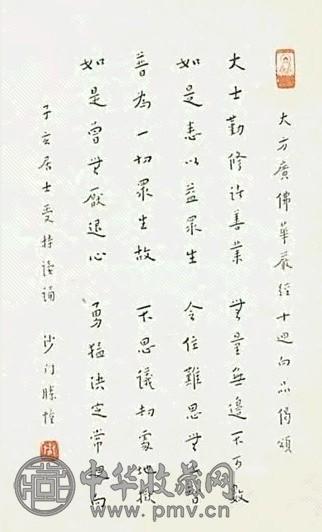 大方廣佛華嚴經十迴向品偈頌
大士勤修諸善業 無量無邊不可數
如是悉以益眾生 令住難思無上智
普為一切眾生故 不思議劫處地獄
如是曾無厭退心 勇猛決定常迴向
子亥居士受持讀誦 沙门勝
中华收藏网
www.pmv.cn